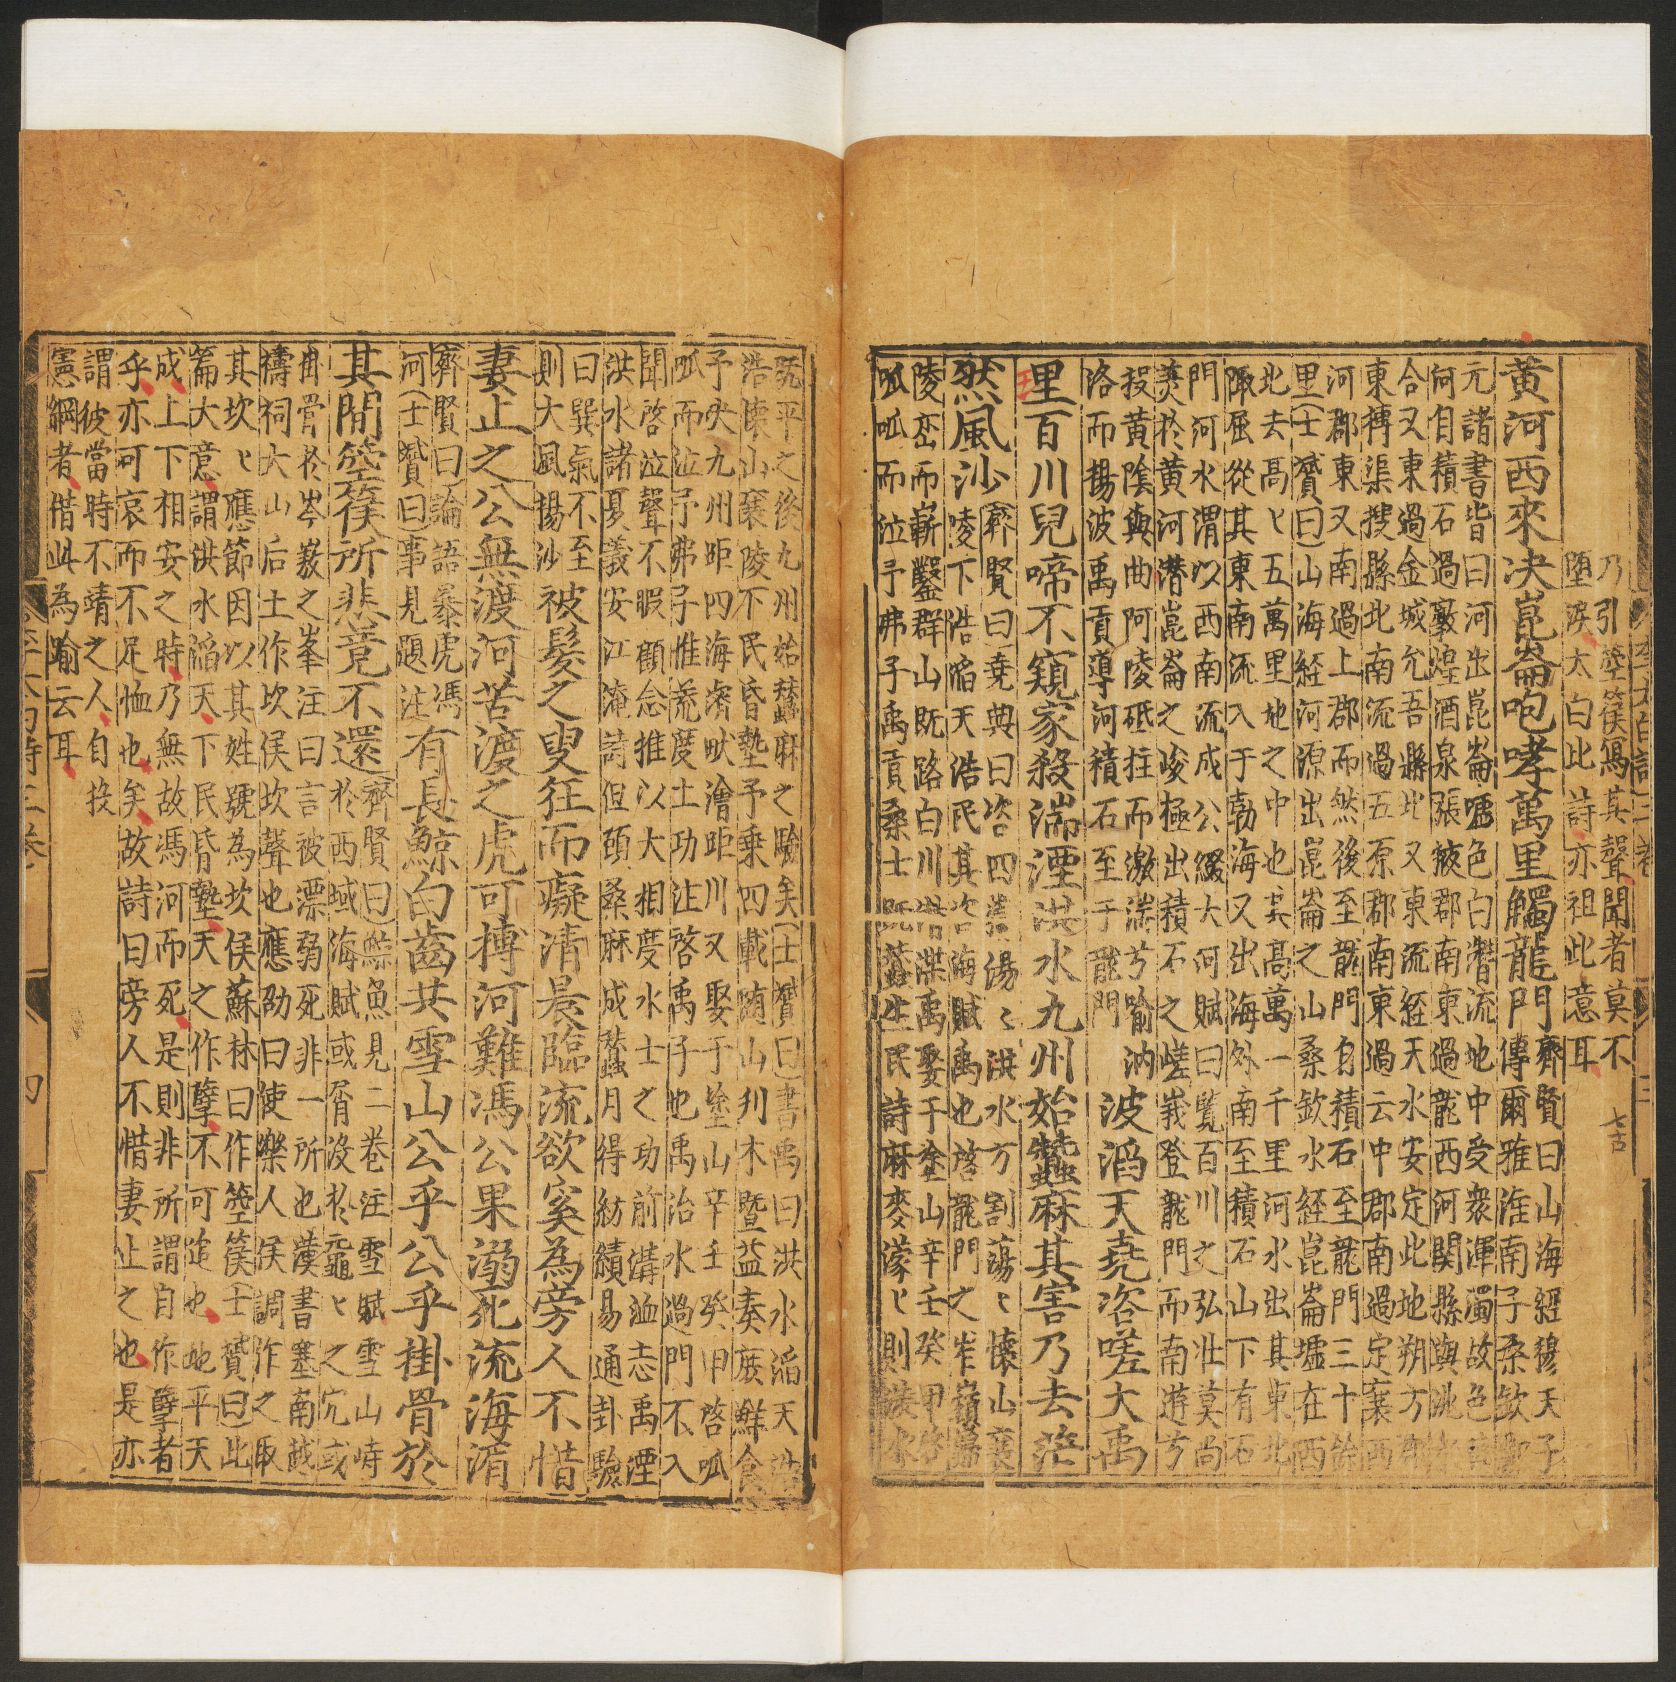 乃引箜篌寫其聲聞者莫不
墮淚太白此詩亦祖此意耳
七古
黃河西來决崑崙咆哮萬里觸龍門
齊賢曰山海經穆天子
傳爾雅淮南子桑欽酈
元諸書皆曰河出崑崙墟色白潛流地中受衆渾濁故色黃
河自積石過燉煌酒泉張掖郡南東過隴西河關縣與洮
合又東過金城允吾縣北又東流經天水安定北地朔方郡
東轉渠搜縣北南流過五原郡南東過云中郡南過定襄西
河郡東又南過上郡而然後至龍門自積石至龍門三十餘
里士贇曰山海經河源出崑崙之山桑欽水經崑崙墟在西
北去高匕五萬里地之中也其高萬一千里河水出其東北
陬屈從其東南流入于勃海又出海外南至積石山下有石
門河水渭以西南流成公綏大河賦曰覽百川之弘壯莫尚
羙於黃河潛崑崙之峻極出積石之嵯峩登龍門而南遊兮
投黃陰與曲阿陵砥柱而激湍兮喻汭
洛而揚波禹貢導河積石至于龍門
波滔天堯咨嗟大禹
里百川兒啼不窺家殺湍湮洪水九州始蠶麻其害乃去茫
然風沙
齊賢曰堯典曰咨四岳湯匕洪水方割蕩匕懷山襄
陵下浩滔天浩民其咨海賦禹也啓龍門之岝嶺墾
陵巒而嶄鑿群山既路百川潛渫禹娶于塗山辛壬癸甲啓
呱呱而泣予弗子禹貢桑土既蠶生民詩麻麥濛匕則洪水
既平之後九州始蠶麻之驗矣士贇曰書禹曰洪水滔天浩
浩懷山襄陵下民昏墊予乘四載随山刋木暨益奏庶鮮食
予决九州距四海濬畎澮距川又娶于塗山辛壬癸甲啓呱
呱而泣予弗子惟荒度土功注啓禹子也禹治水過門不入
聞啓泣聲不暇顧念推以大相度水士之功前溝洫志禹堙
洪水諸夏羲安江淹詩但頋桑麻成蠶月得紡績易通卦驗
曰巽氣不至
則大風揚沙
被髮之叟狂而癡清晨臨流欲奚為旁人不惜
妻止之公無渡河苦渡之虎可搏河難馮公果溺死流海湄
齊賢曰論語暴虎馮
河士贇曰事見題注
有長鯨白齒共雪山公乎公乎掛骨於
其間箜篌所悲竟不還
齊賢曰鯨魚見二卷注雪賦雪山峙
於西域海賦或胥沒於黿匕之穴或
骨於岑嶅之峯注曰言被漂弱死非一所也漢書塞南越
禱祠大山后土作坎侯坎聲也應劭曰使樂人侯調作之取
其坎匕應節因以其姓號為坎侯蘇林曰作箜篌士贇曰此
篇大意謂洪水滔天下民昏墊天之作孽不可違也地平天
成上下相安之時乃無故馮河而死是則非所謂自作孽者
乎亦可哀而不足恤也矣故詩曰旁人不惜妻止之也是亦
謂彼當時不靖之人自投
憲綱者借此為喻云耳